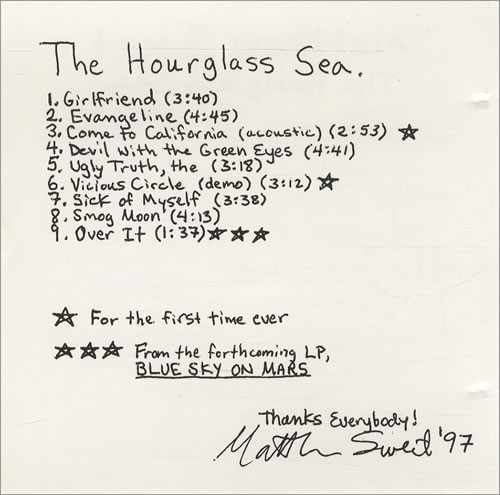 The Hourglass Sea.
1. Girlfriend (3:40)
2. Evangeline (4:45)
3. Come to California (acoustic) (2:53) ☆
4. Devil with the Green Eyes (4:41)
5. Ugly Truth, the (3:18)
6. Vicious Circle (demo) (3:12) ☆
7. Sick of Myself (3:38)
8. Smog Moon (4:13)
9. Over It (1:37) ☆☆☆
☆ For the first time ever
☆☆☆ From the forthcoming LP,
BLUE SKY ON MARS
Thanks Everybody!
Matthew Sweet '97